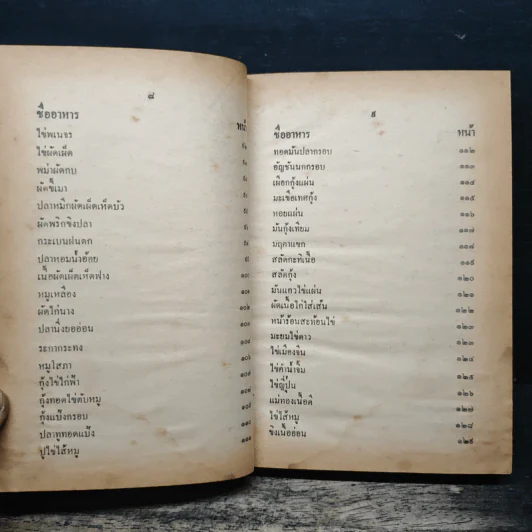 ๘
ชื่ออาหาร
หน้า
ไข่พเนจร
ไข่ผัดเผ็ด
พม่าผัดกบ
ผัดขี้เมา
ปลาหมึกผัดเผ็ดเห็ดบัว
ผัดพริกขิงปลา
กระเบนฝนตก
ปลาหอมน้ำอ้อย
เนื้อผัดเผ็ดเห็ดฟาง
หมูเหลือง
ผัดไก่นาง
ปลานึ่งยออ่อน
ระกากระทง
หมูโสภา
กุ้งไข่ไก่ฟ้า
กุ้งทอดไข่ตับหมู
กุ้งแป้งกรอบ
ปลาทูทอดแป้ง
ปูไข่ไส้หมู
๙
ชื่ออาหาร หน้า
ทอดมันปลากรอบ ๑๑๒
อัญชันนกกรอบ
เผือกกุ้งแผ่น ๑๑๔
มะเขือเทศกุ้ง ๑๑๕
หอยแผ่น ๑๑๖
มันกุ้งเทียม ๑๑๗
มฤกาแขก ๑๑๘
สลัดกะทิเนื้อ ๑๑๙
สลัดกุ้ง ๑๒๐
มันแกวไข่แผ่น ๑๒๑
ผัดเนื้อไก่ใส่เส้น ๑๒๒
หน้าร้อนสะท้อนไข่
มะยมไข่ดาว ๑๒๓
ไข่เมืองจีน ๑๒๔
ไข่คำน้ำจิ้ม ๑๒๕
ไข่ญี่ปุ่น ๑๒๖
แม่ทองเนื้อดี
ไข่ไส้หมู ๑๒๗
ขิงเนื้ออ่อน ๑๒๘
๑๒๙